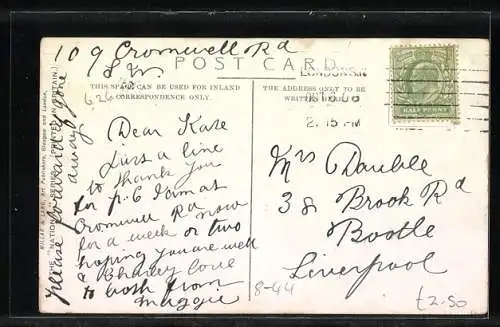 109 Cromwell Rd
S.W.
POST CARD
THIS SPACE CAN BE USED FOR INLAND
CORRESPONDENCE ONLY.
THE ADDRESS ONLY TO BE
WRITTEN HERE.
LONDON S.W
2.15 PM
HALF PENNY
Dear Kate
Just a line
to thank you
for p.c I am at
Cromwell Rd
for a week or two now
hoping you are well
& Charley love
to both from
Maggie
please forward if gone
away
THE "NATIONAL" SERIES. PRINTED IN BRITAIN.
MILLAR & LANG, Art Publishers, Glasgow and London.
Mrs Dauble
38 Brook Rd
Bootle
Liverpool
8-44
£2.50